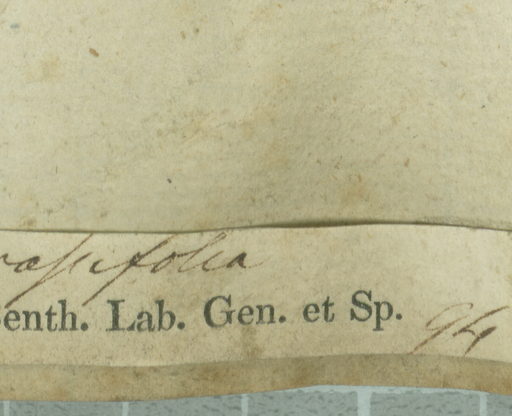 rassifolia
Benth. Lab. Gen. et Sp. 94